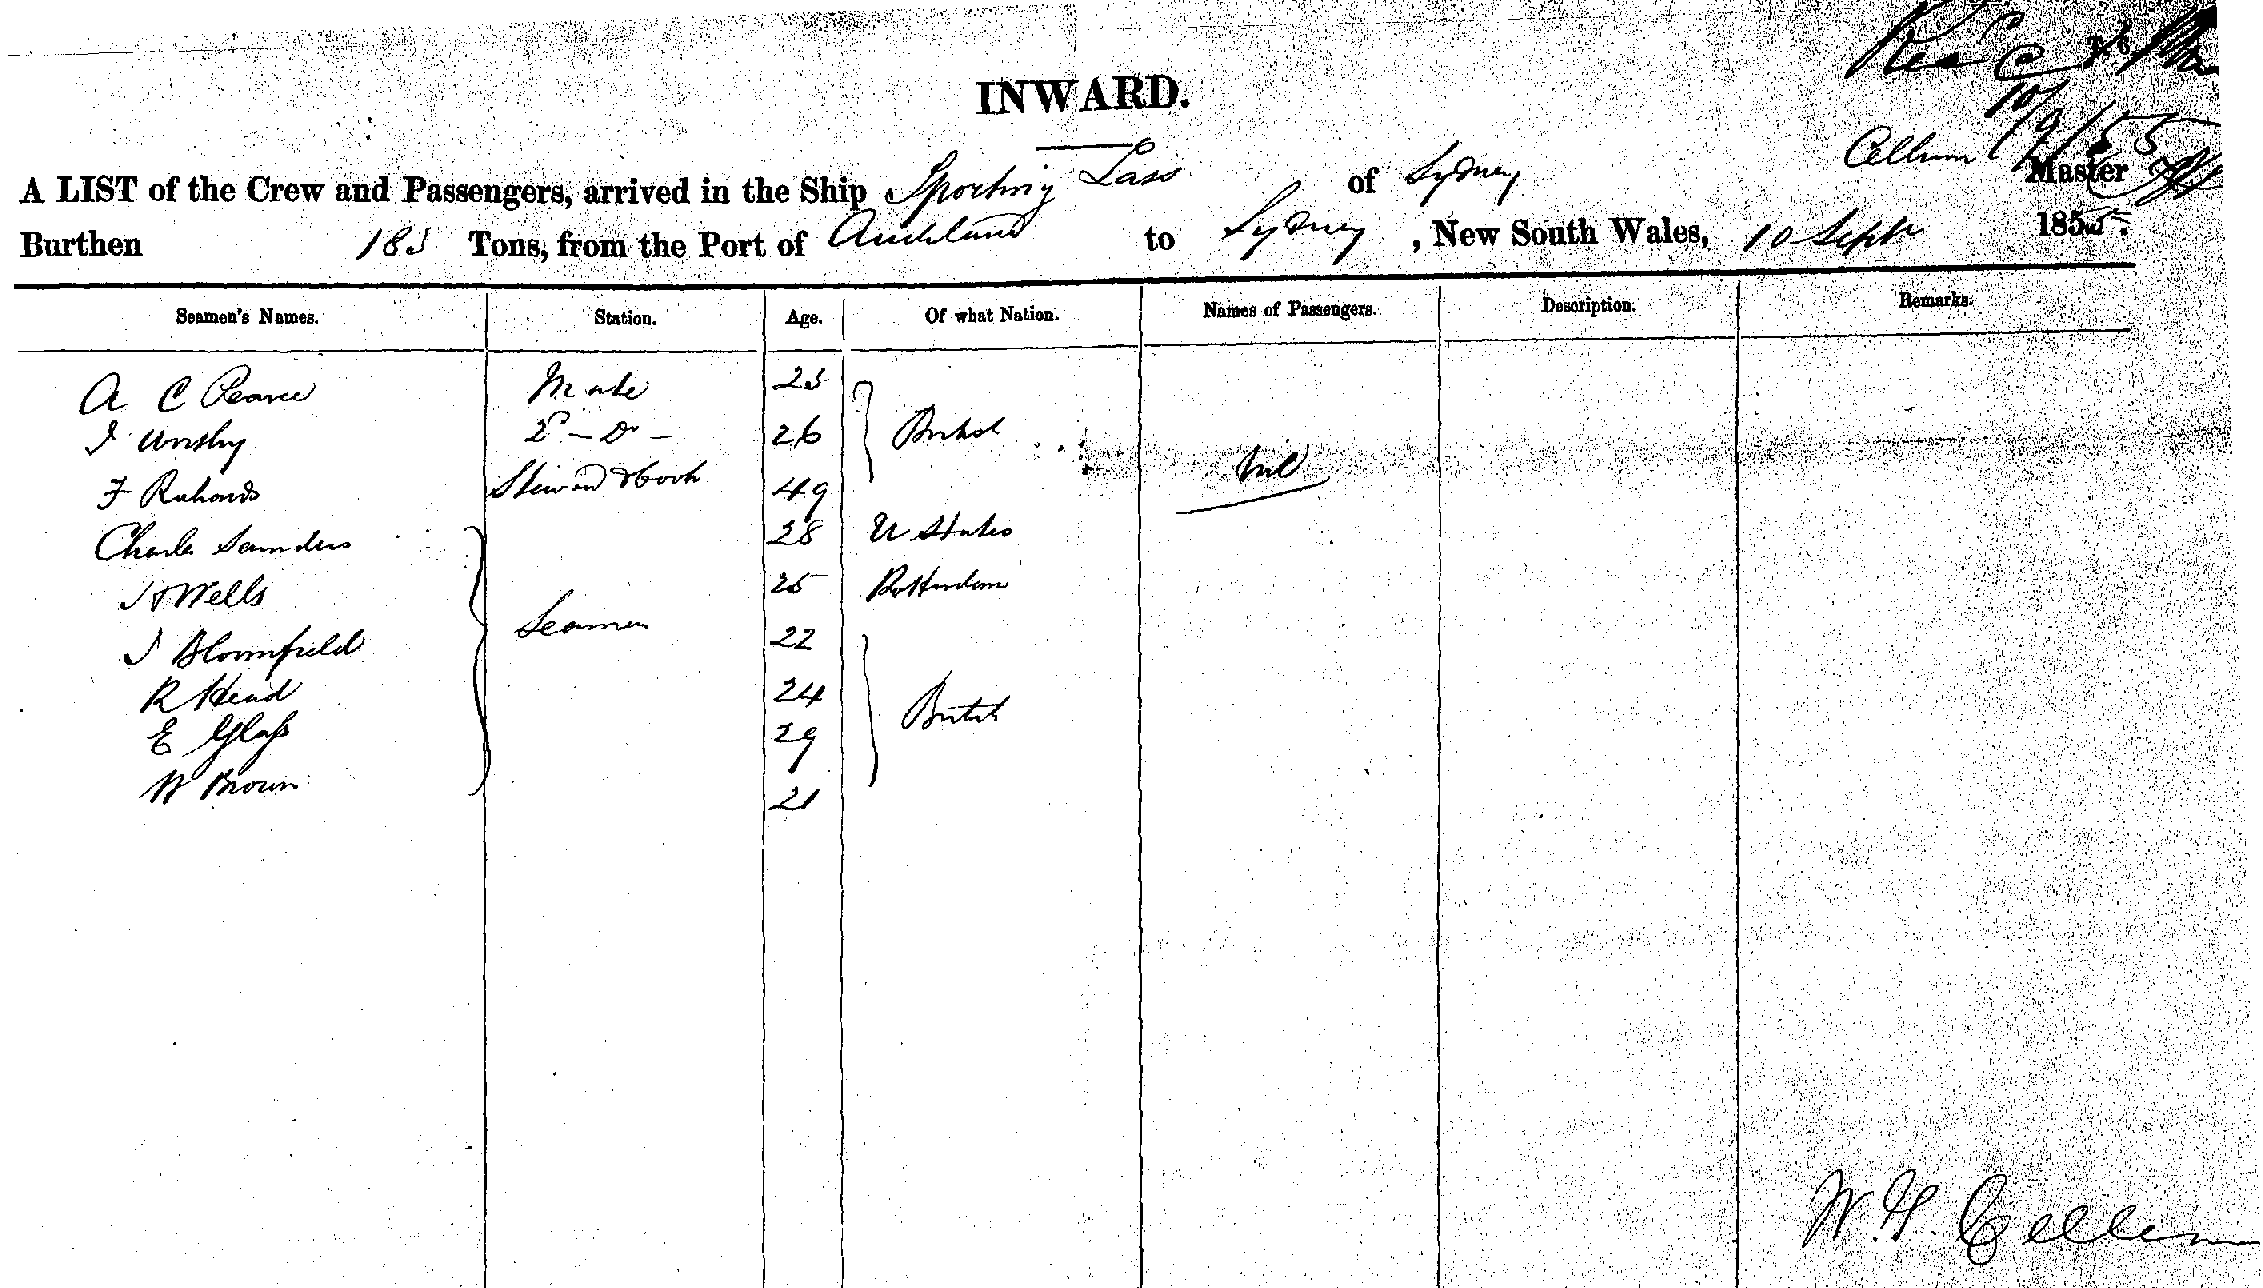 INWARD.
A LIST of the Crew and Passengers, arrived in the Ship Sporting Lass of Sydney Master
Burthen 183 Tons, from the Port of Auckland to Sydney, New South Wales, 10 Septr 1855.
Seamen's Names. Station. Age. Of what Nation. Names of Passengers. Description. Remarks.
A C Pearce Mate 23
26 British
Nil
F Richards Steward & Cook 49
Charles Saunders 28 U States
J Wells 25 Rotterdam
Seamen
J Bloomfield 22
R Head 24
British
E Glass 29
W Brown 21